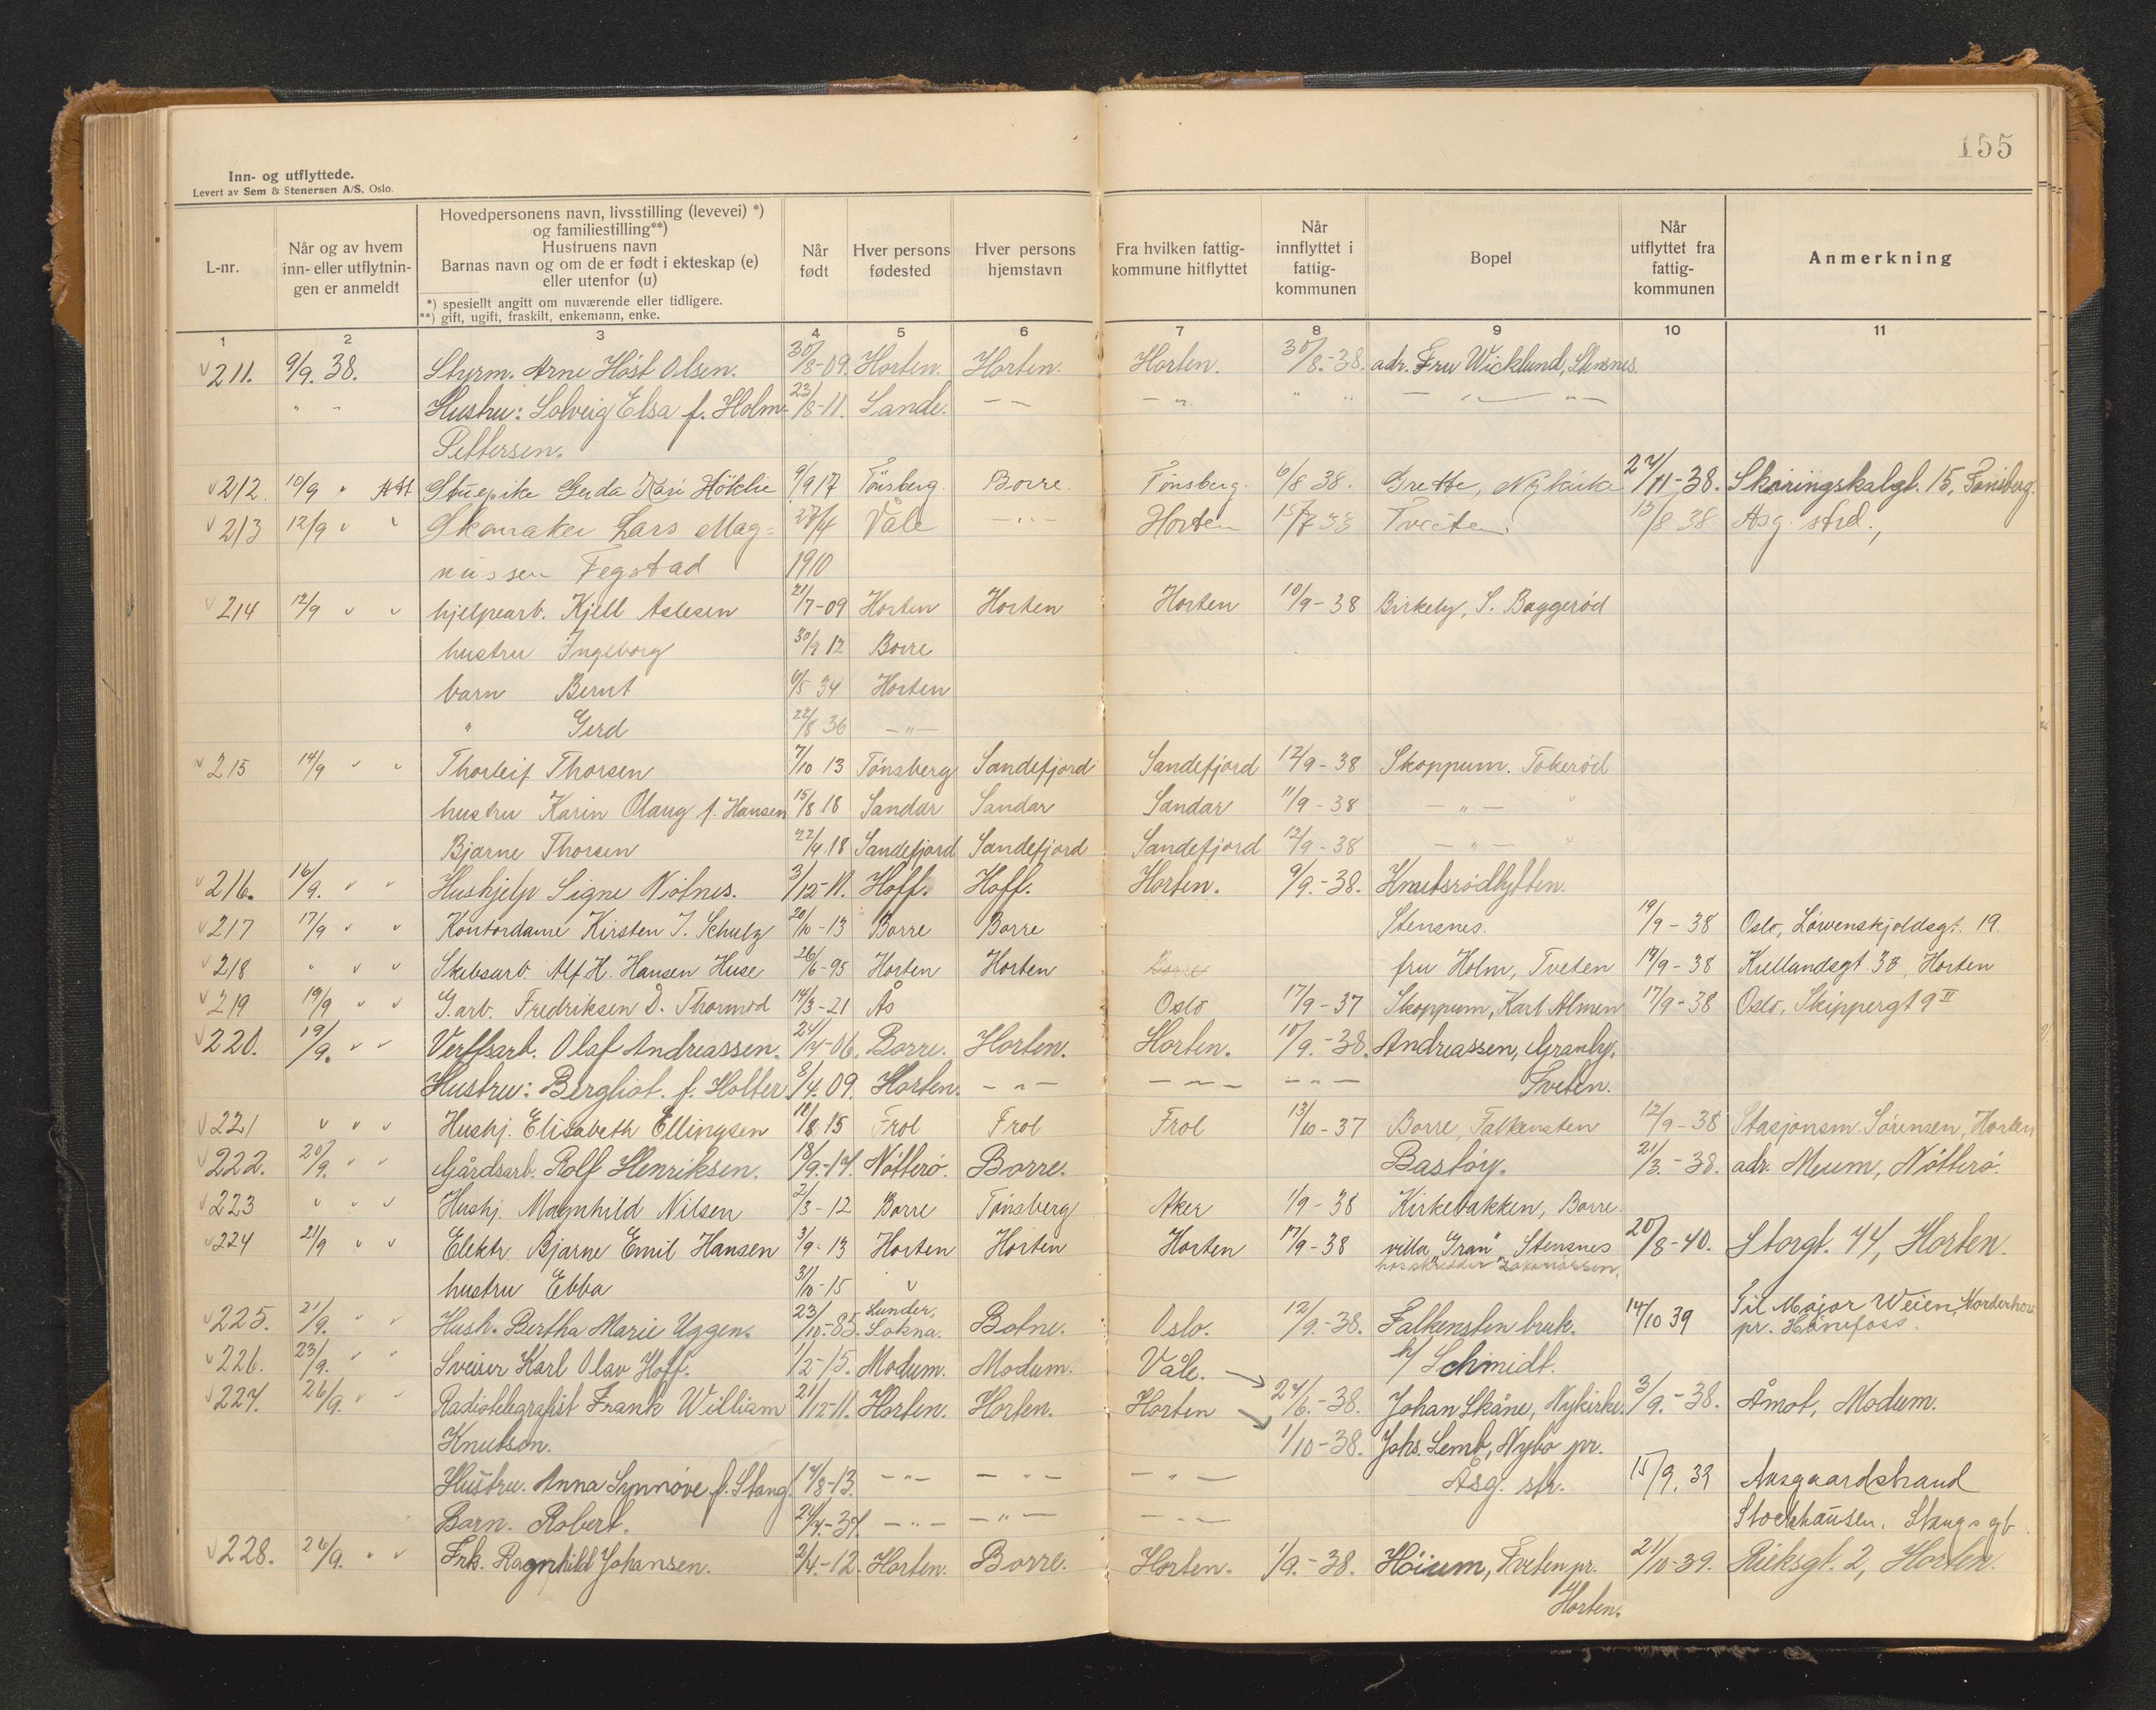 155
Inn- og utflyttede.
Levert av Sem & Stenersen A/S, Oslo.
L-nr.
Når og av hvem inn- eller utflytnin-gen er anmeldt
Hovedpersonens navn, livsstilling (levevei) *)
og familiestilling**)
Hustruens navn
Barnas navn og om de er født i ekteskap (e)
eller utenfor (u)
*) spesiellt angitt om nuværende eller tidligere.
**) gift, ugift, fraskilt, enkemann, enke.
Når født
Hver persons fødested
Hver persons hjemstavn
Fra hvilken fattig-kommune hitflyttet
Når innflyttet i fattig-kommunen
Bopel
Når utflyttet fra fattig-kommunen
Anmerkning
1 2 3 4 5 6 7 8 9 10 11
211. 9/9. 38. Styrm. Arne Høst Olsen. 30/8-09. Horten. Horten. Horten. 30/8.-38. adr. Fru Wicklund, Stensnes.
" " Hustru: Solveig Elsa f. Holm- 23/8-11. Sande. — — — " — " " — " — " —
Pettersen.
212. 10/9 " Stuepike Gerda Kari 9/9 17 Tönsberg. Borre. Tönsberg. 6/8 38. Grette, Nykirke 27/11-38. Skiringskalgt. 15, Tønsberg.
213 12/9 " " Skomaker Lars Mag= 27/4 Våle — " — Horten 15/7 33 Tveiten. 15/8 38 Åsg. strd.,
nussen Fegstad 1910
214 12/9 " " hjelpearb. Kjell Aslesen 21/7-09 Horten Horten Horten 10/9-38 Birkely, S. Baggerød
hustru Ingeborg 30/9 12 Borre
barn Bernt 6/5 34 Horten
" Gerd 22/8 36 — " —
215 14/9 " " Thorleif Thorsen 7/10 13 Tönsberg Sandefjord Sandefjord 12/9-38 Skoppum. Tokerød
hustru Karin Olaug f. Hansen 15/8 18 Sandar Sandar Sandar 11/9-38 — " — "
Bjarne Thorsen 22/4 18 Sandefjord Sandefjord Sandefjord 12/9-38 — " — "
216. 16/9. " " Hushjelp Signe Nötnes. 3/12-11. Hoff. Hoff. Horten. 9/9.-38. Knutsrødhytten.
217 17/9 " " Kontordame Kirsten J. Schulz 20/10-13 Borre Borre Stensnes. 19/9-38 Oslo, Løvenskjoldsgt. 19.
218 " " " Skibsarb. Alf H. Hansen Huse 26/6-95 Horten Horten Borre fru Holm, Tveten 19/9-38 Kiellandsgt. 33, Horten
219 19/9 " " G.arb. Fredriksen D. Thormod 14/3-21 Ås Oslo 17/9-37 Skoppum, Karl Almen 17/9-38 Oslo, Skippergt 9 II
220. 19/9. " " Verftsarb. Olaf Andreassen. 24/4-06. Borre. Horten. Horten. 10/9.-38. Andreassen, Granly,
Hustru: Bergliot. f. Holter. 8/4.09. Horten. — " — — " — — " — Tveten.
221 " " " Hushj. Elisabeth Ellingsen 12/8 15 Frol Frol Frol 13/10-37 Borre, Falkensten 12/9-38 Stasjonsm. Sørensen, Horten
222. 20/9. " " Gårdsarb. Rolf Henriksen. 18/9.-14. Nötterö. Borre. Bastöy. 21/3.-38. adr. Meum, Nötterö.
223 " " " Hushj. Magnhild Nilsen 2/3-12 Borre Tönsberg Aker 1/9-38 Kirkebakken, Borre
224 21/9 " " Elektr. Bjarne Emil Hansen 3/9-13 Horten Horten Horten 17/9-38 villa "Gran", Stensnes 20/8-40. Storgt. 44, Horten.
hos skredder Zakariassen.
hustru Ebba 31/10-15 "
225. 21/9. " " Hush. Bertha Marie Uggen. 23/10.-85. Lunder, Sokna. Botne. Oslo. 12/9.-38. Falkensten bruk. 14/10 39 Til Major Weien, Norderhov
pr. Hönefoss.
226. 23/9. " " Sveiser Karl Olav Hoff. 1/2-15. Modum. Modum. Våle. b/ Schmidt.
227. 26/9. " " Radiotelegrafist Frank William 21/12-11. Horten. Horten. Horten 24/6.-38. Johan Skåne, Nykirke. 3/9.-38. Åmot, Modum.
Knutson. 1/10-38. Johs. Lemb, Nybo pr.
Hustru. Anna Synnöve f. Stang. 14/8-13. — " — — " — — " — Åsg. str. 15/9.39 Aasgaardstrand
Barn. Robert. 24/4.-37. — " — — " — — " — Stockhausen. Stangsgt.
228. 26/9. " " Frk. Ragnhild Johansen. 2/4-12. Horten. Borre. Horten. 1/9.-38. Höium, Tveten pr. 21/10-39. Rieksgt. 2, Horten.
Horten.